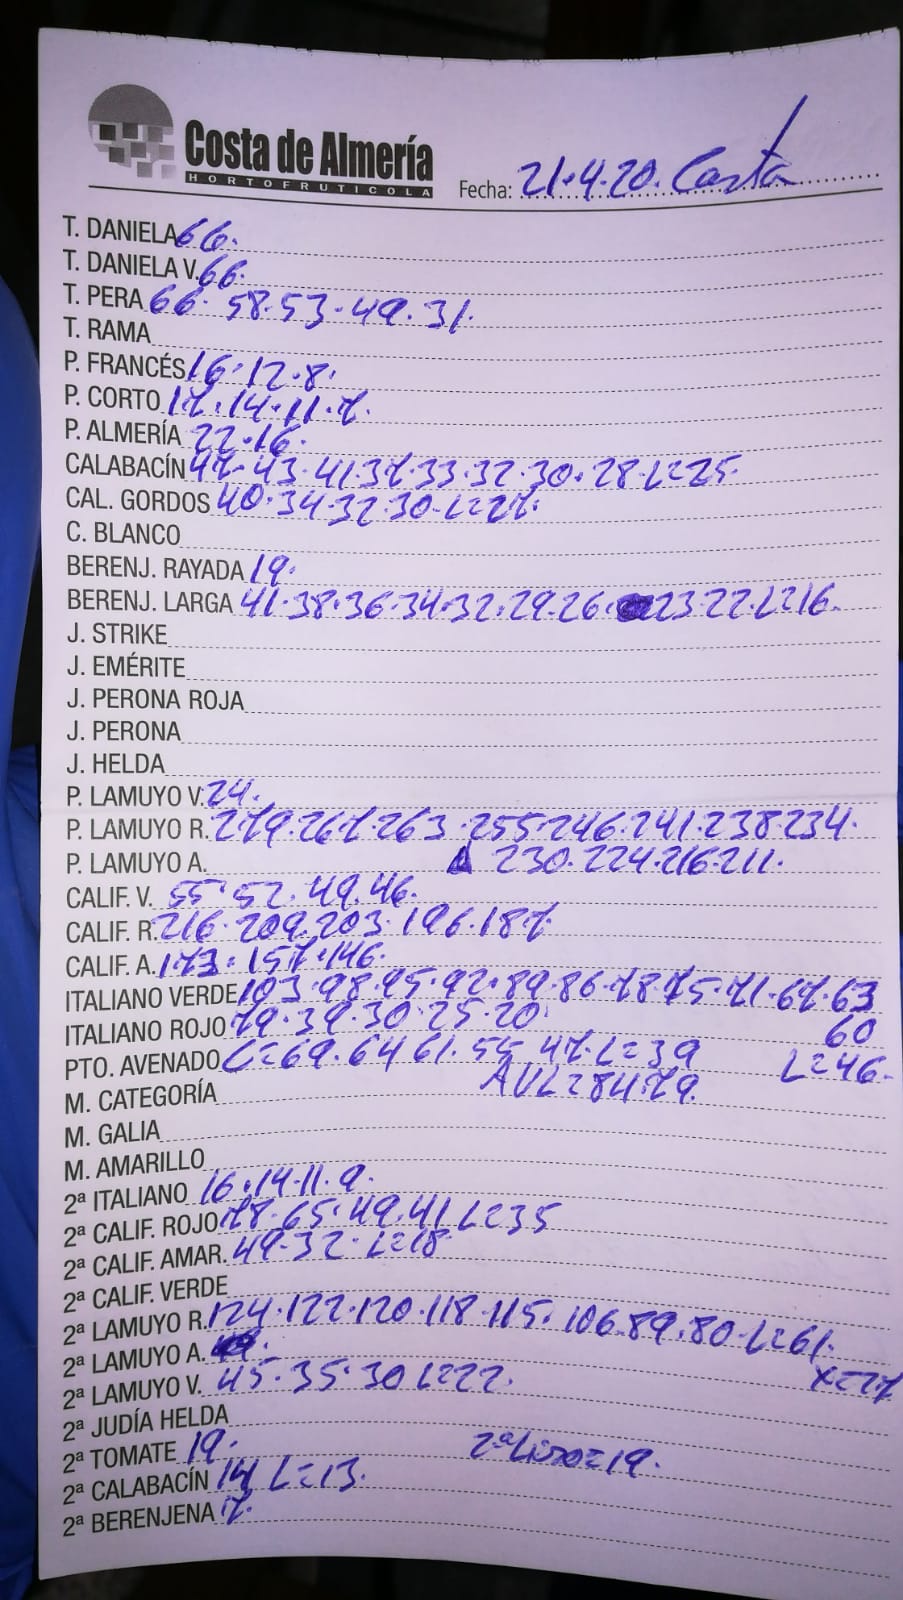 Costa de Almería
HORTOFRUTICOLA
Fecha: 21.4.20. Costa
T. DANIELA 66.
T. DANIELA V. 66.
T. PERA 66. 58.53.49.31.
T. RAMA
P. FRANCÉS 16.12.8.
P. CORTO 17.14.11.7.
P. ALMERÍA 22.16.
CALABACÍN 47.43.41.37.33.32.30.28.L=25
CAL. GORDOS 40.34.32.30.L=27.
C. BLANCO
BERENJ. RAYADA 19.
BERENJ. LARGA 41.38.36.34.32.29.26. 23.22.L=16.
J. STRIKE
J. EMÉRITE
J. PERONA ROJA
J. PERONA
J. HELDA
P. LAMUYO V. 24.
P. LAMUYO R. 279.267.263.255.246.241.238.234.
P. LAMUYO A. 230.224.216.211.
CALIF. V. 55.52.49.46.
CALIF. R. 216.209.203.196.187.
CALIF. A. 173.157.146.
ITALIANO VERDE 103.98.95.92.89.86.78.75.71.67.63
ITALIANO ROJO 79.39.30.25.20. 60
PTO. AVENADO L=69.64.61.55.47.L=39 L=46.
M. CATEGORÍA AVL=84.79.
M. GALIA
M. AMARILLO
2ª ITALIANO 16.14.11.9.
2ª CALIF. ROJO 78.65.49.41 L=35
2ª CALIF. AMAR. 49.32.L=18
2ª CALIF. VERDE
2ª LAMUYO R. 124.122.120.118.115.106.89.80.L=61.
2ª LAMUYO A. X=27
2ª LAMUYO V. 45.35.30 L=22.
2ª JUDÍA HELDA
2ª TOMATE 19. 2ª Liso=19.
2ª CALABACÍN 14 L=13.
2ª BERENJENA 7.